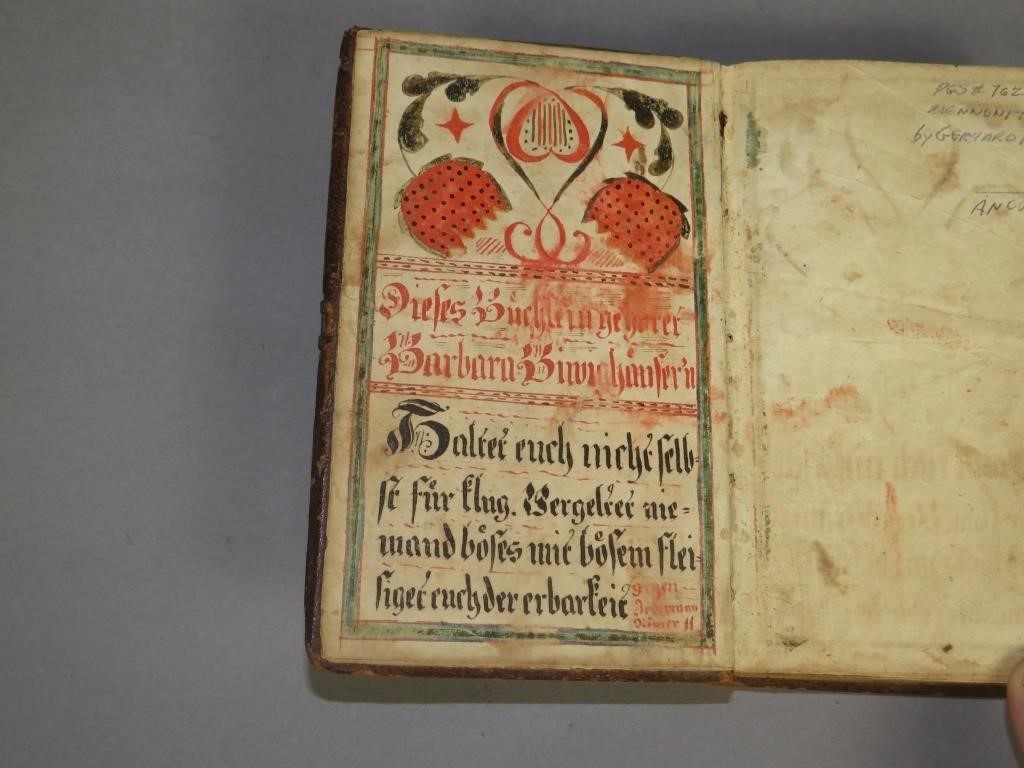 Dieses Büchlein gehöret
Barbara
Haltet euch nicht selb-
st für klug. Vergeltet nie=
mand böses mit bösem flei-
siget euch der erbarkeit
gegen
Jederman
Römer 11
PGS # 762
MENNONIT
by GERHARD